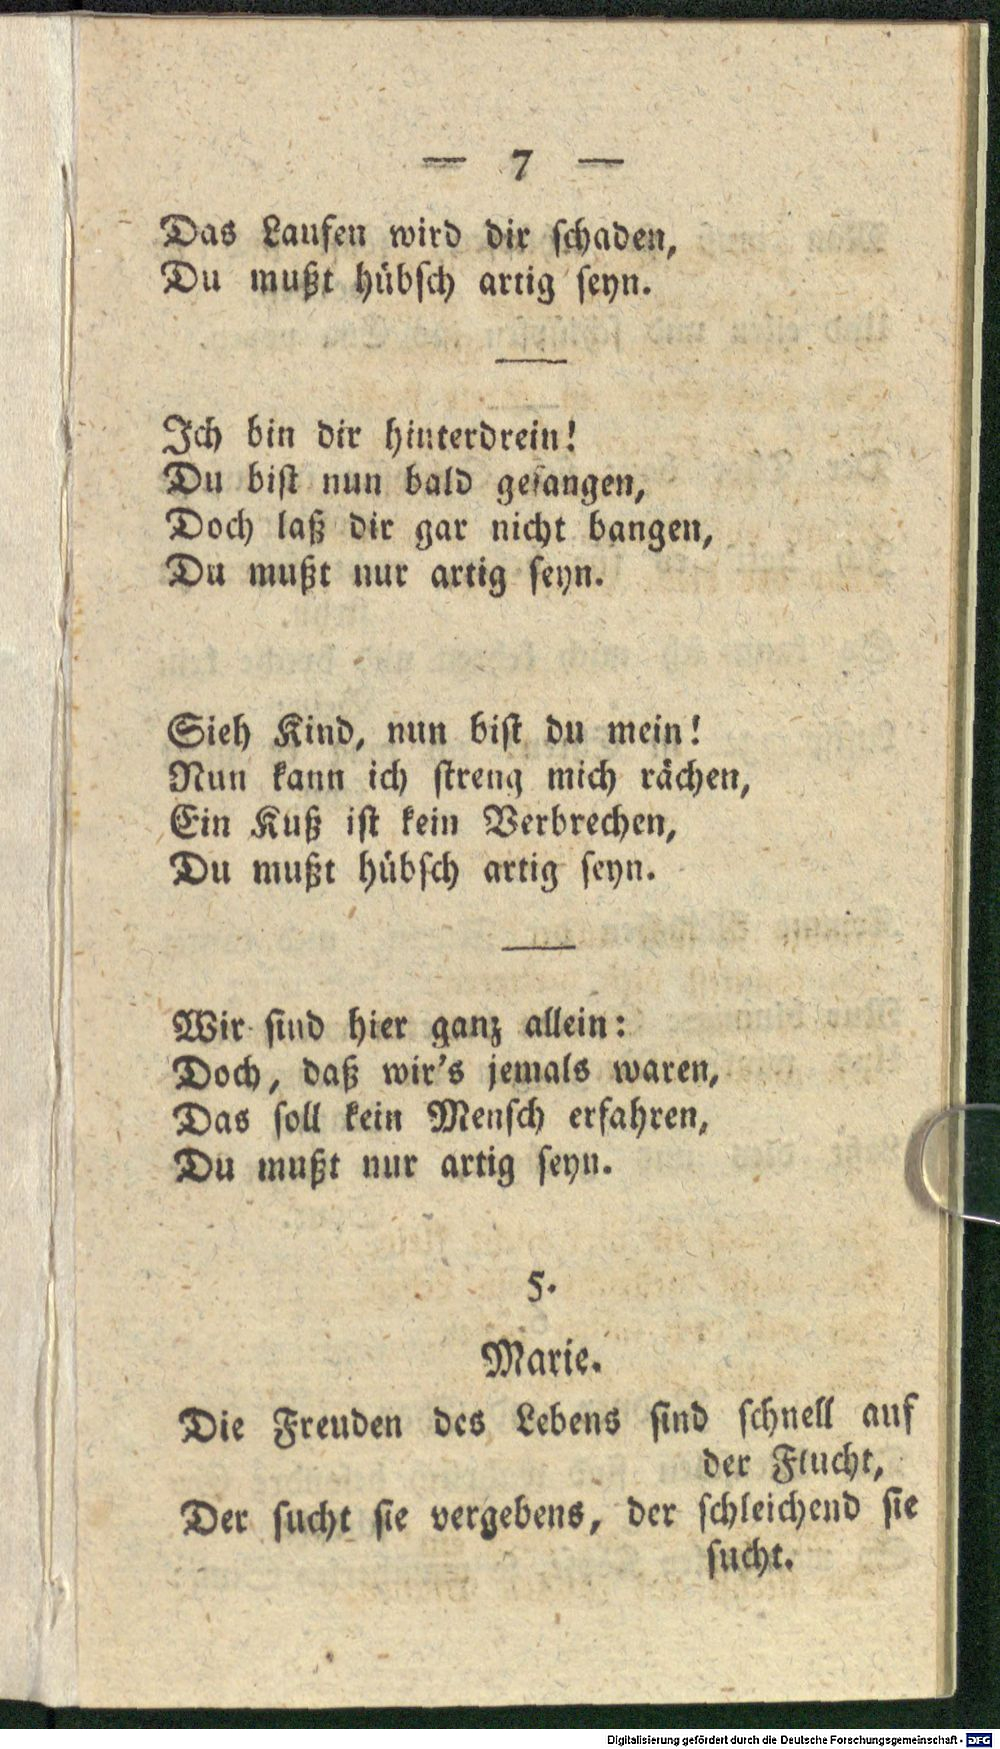 — 7 —
Das Laufen wird dir schaden,
Du mußt hübsch artig seyn.
Ich bin dir hinterdrein!
Du bist nun bald gefangen,
Doch laß dir gar nicht bangen,
Du mußt nur artig seyn.
Sieh Kind, nun bist du mein!
Nun kann ich streng mich rächen,
Ein Kuß ist kein Verbrechen,
Du mußt hübsch artig seyn.
Wir sind hier ganz allein:
Doch, daß wir's jemals waren,
Das soll kein Mensch erfahren,
Du mußt nur artig seyn.
5.
Marie.
Die Freuden des Lebens sind schnell auf
der Flucht,
Der sucht sie vergebens, der schleichend sie
sucht.
Digitalisierung gefördert durch die Deutsche Forschungsgemeinschaft - DFG